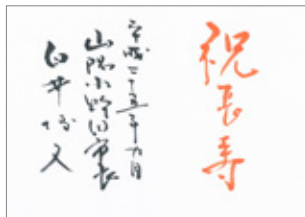 祝長寿
平成二十五年九月
山陽小野田市長
白井博文